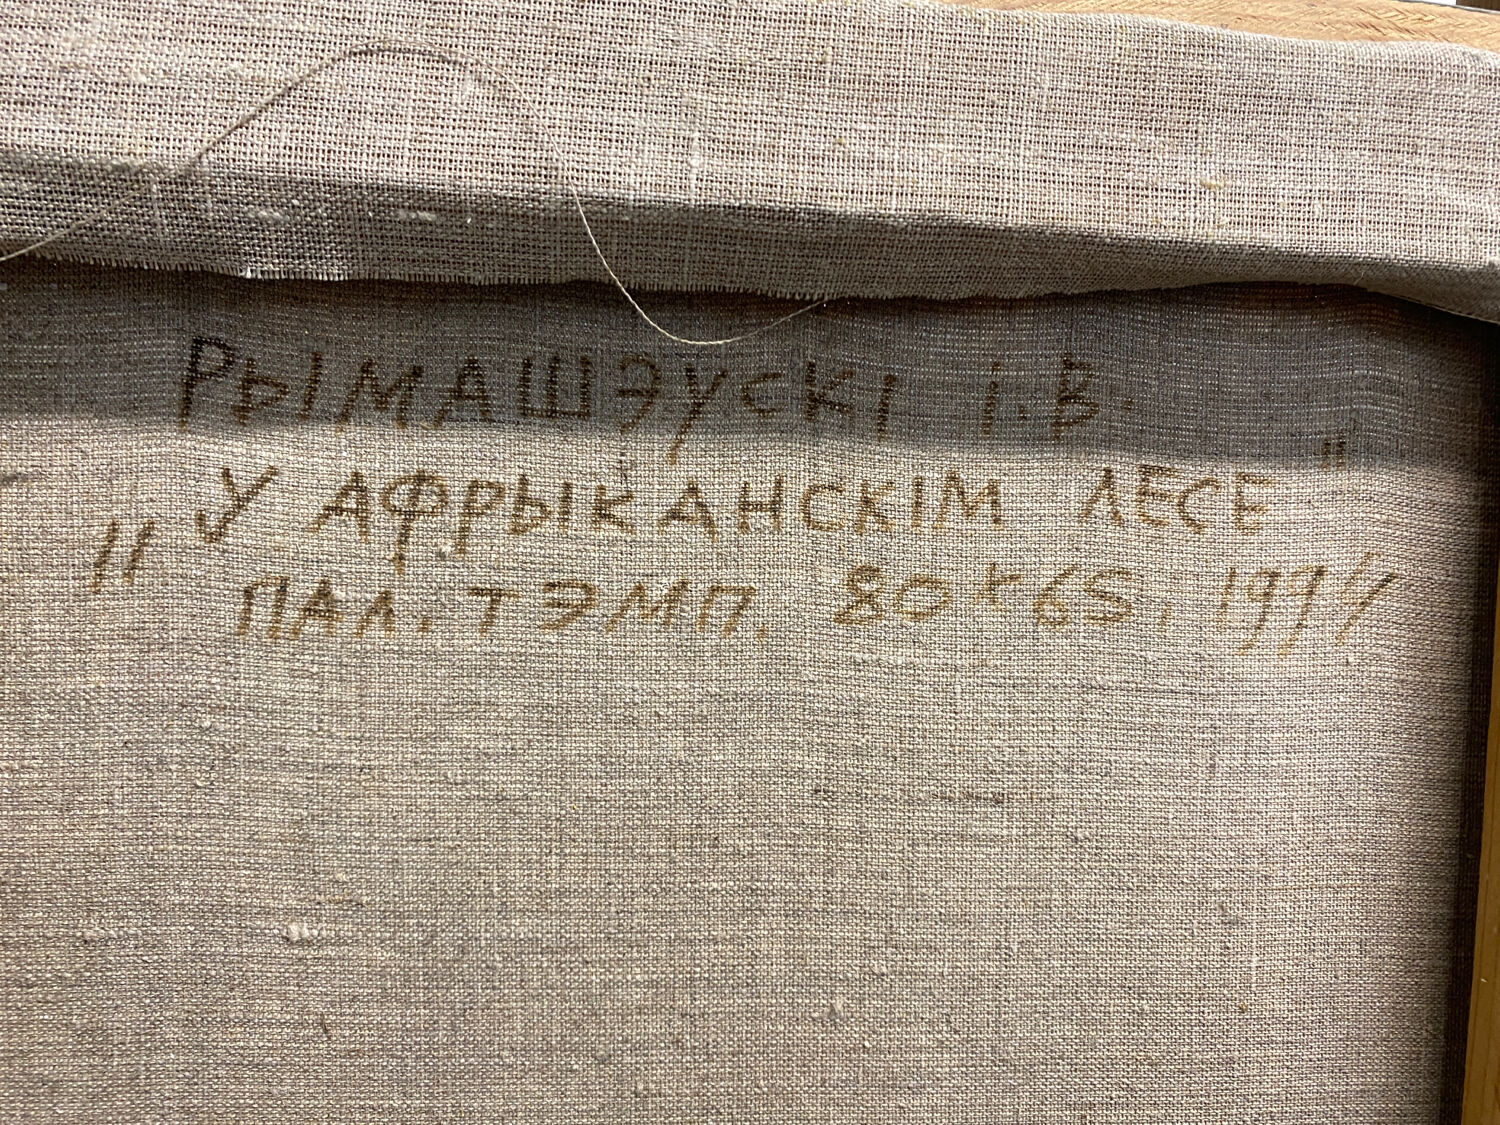 РЫМАШЭУСКІ І.В.
„У АФРЫКАНСКІМ ЛЕСЕ"
ПАЛ. ТЭМП. 80x65, 1994